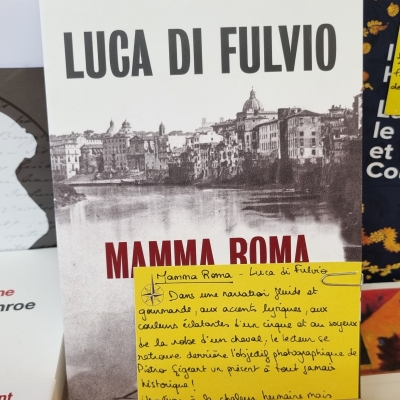 LUCA DI FULVIO
MAMMA ROMA
Mamma Roma - Luca di Fulvio
Dans une narration fluide et
gourmande, aux accents lyriques, aux
couleurs éclatantes d'un cirque et au soyeux
de la robe d'un cheval, le lecteur se
retrouve derrière l'objectif photographique de
Pietro figeant un présent à tout jamais
historique !
la chaleur humaine mais
ne
nroe
nt
le
et
Co